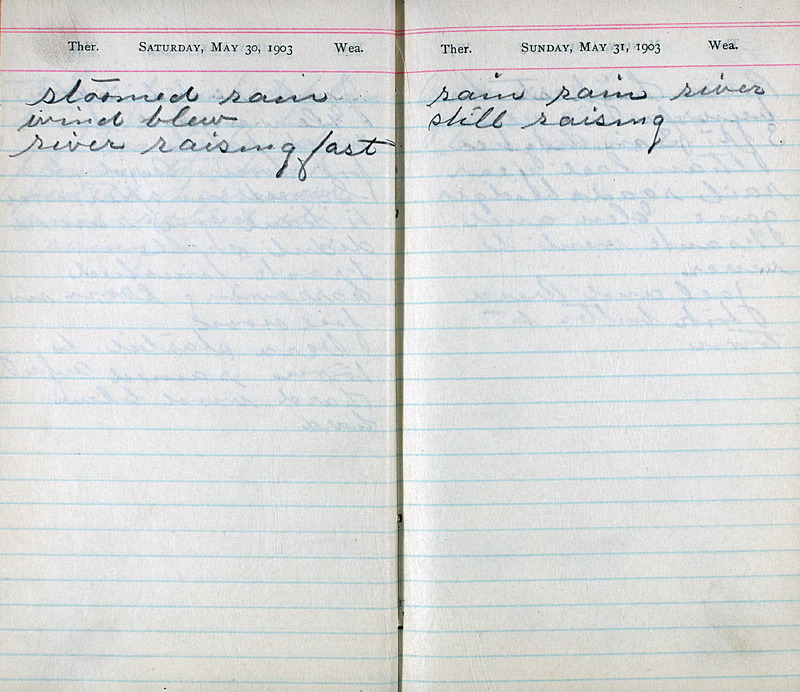 Ther. SATURDAY, MAY 30, 1903 Wea.
stoomed rain
wind blew
river raising fast
Ther. SUNDAY, MAY 31, 1903 Wea.
rain rain river
still raising